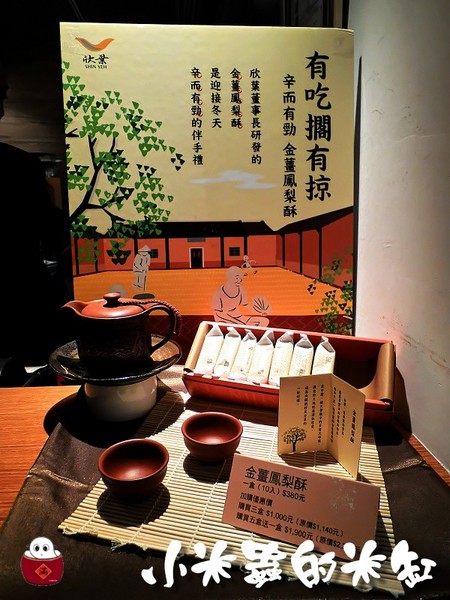 欣葉
SHIN YEH
有吃擱有掠
辛而有勁 金薑鳳梨酥
欣葉董事長研發的
金薑鳳梨酥
是迎接冬天
辛而有勁的伴手禮
金薑鳳梨酥
金薑鳳梨酥
一盒(10入)$380元
加購優惠價
購買三盒 $1,000元(原價$1,140元)
購買五盒送一盒 $1,900元(原價$2
小米蟲的米缸